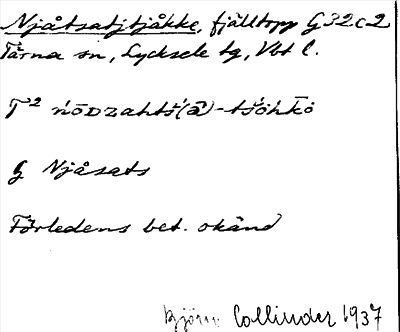 Njåtsatjtjåkke, fjälltopp G32c2
Tärna sn, Lycksele lg, Vbt l.
G Njåsats
Förledens bet. okänd
Björn Collinder 1937